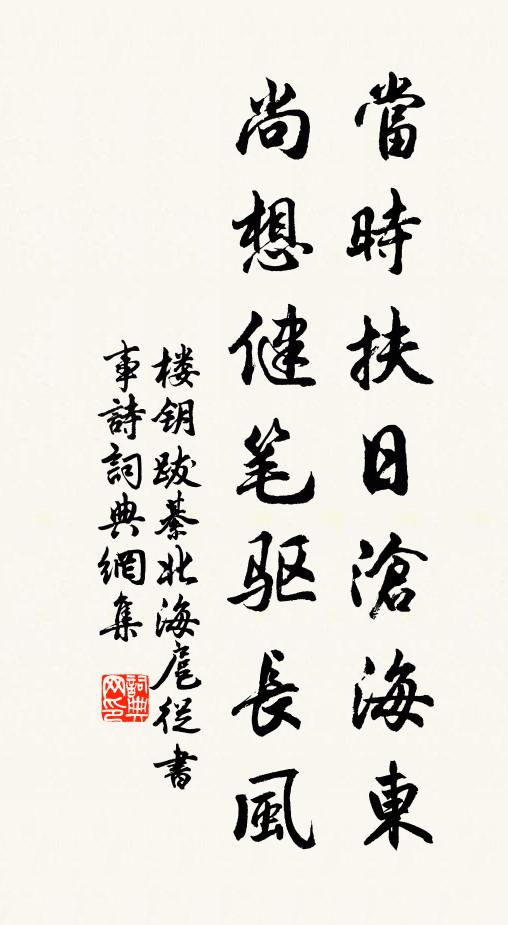 當時扶日滄海東
尚想健笔驱長風
楼钥跋綦北海扈從書
事詩詞典網集
詞典网印